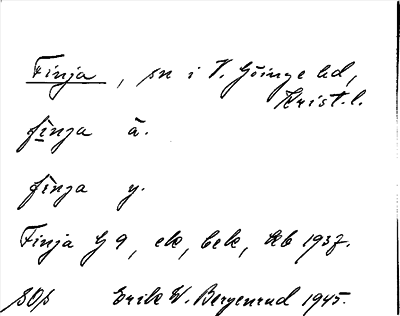 Finja, sn i V. Göinge hd,
Krist.l.
finja ä.
finja y.
Finja G 9, ek, bek, Kb 1937.
SOs Erik W. Bergenrud 1945.